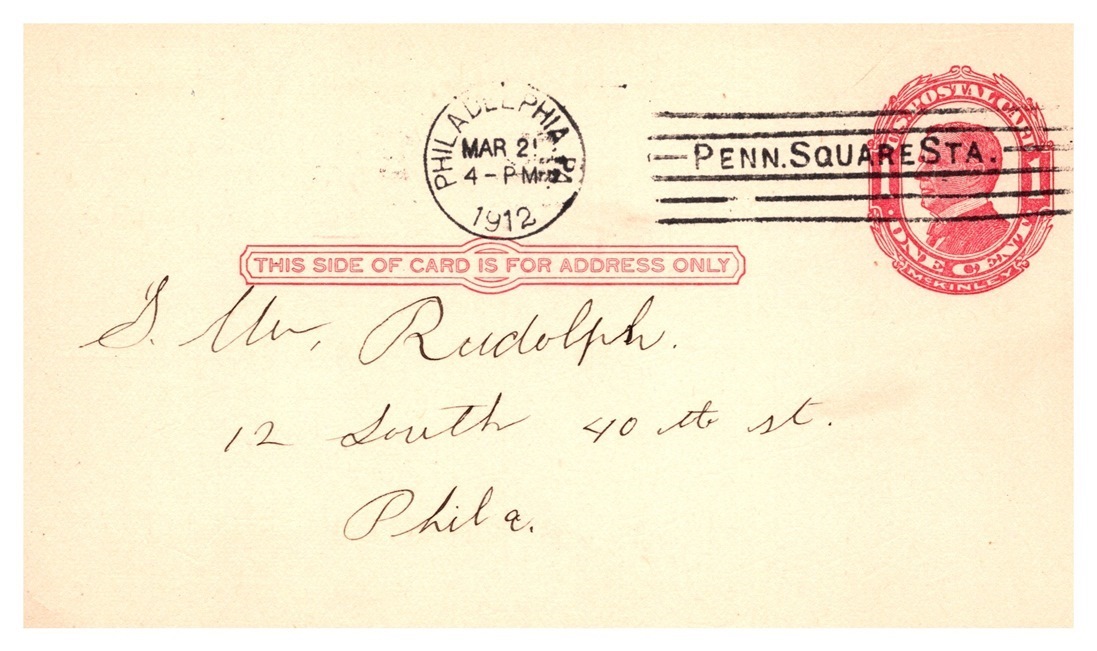 PHILADELPHIA, PA.
MAR 21
4-PM
1912
PENN. SQUARE STA.
U.S. POSTAL CARD
1 1
ONE CENT
McKINLEY
THIS SIDE OF CARD IS FOR ADDRESS ONLY
S. Wm, Rudolph.
12 South 40 th st.
Phila.